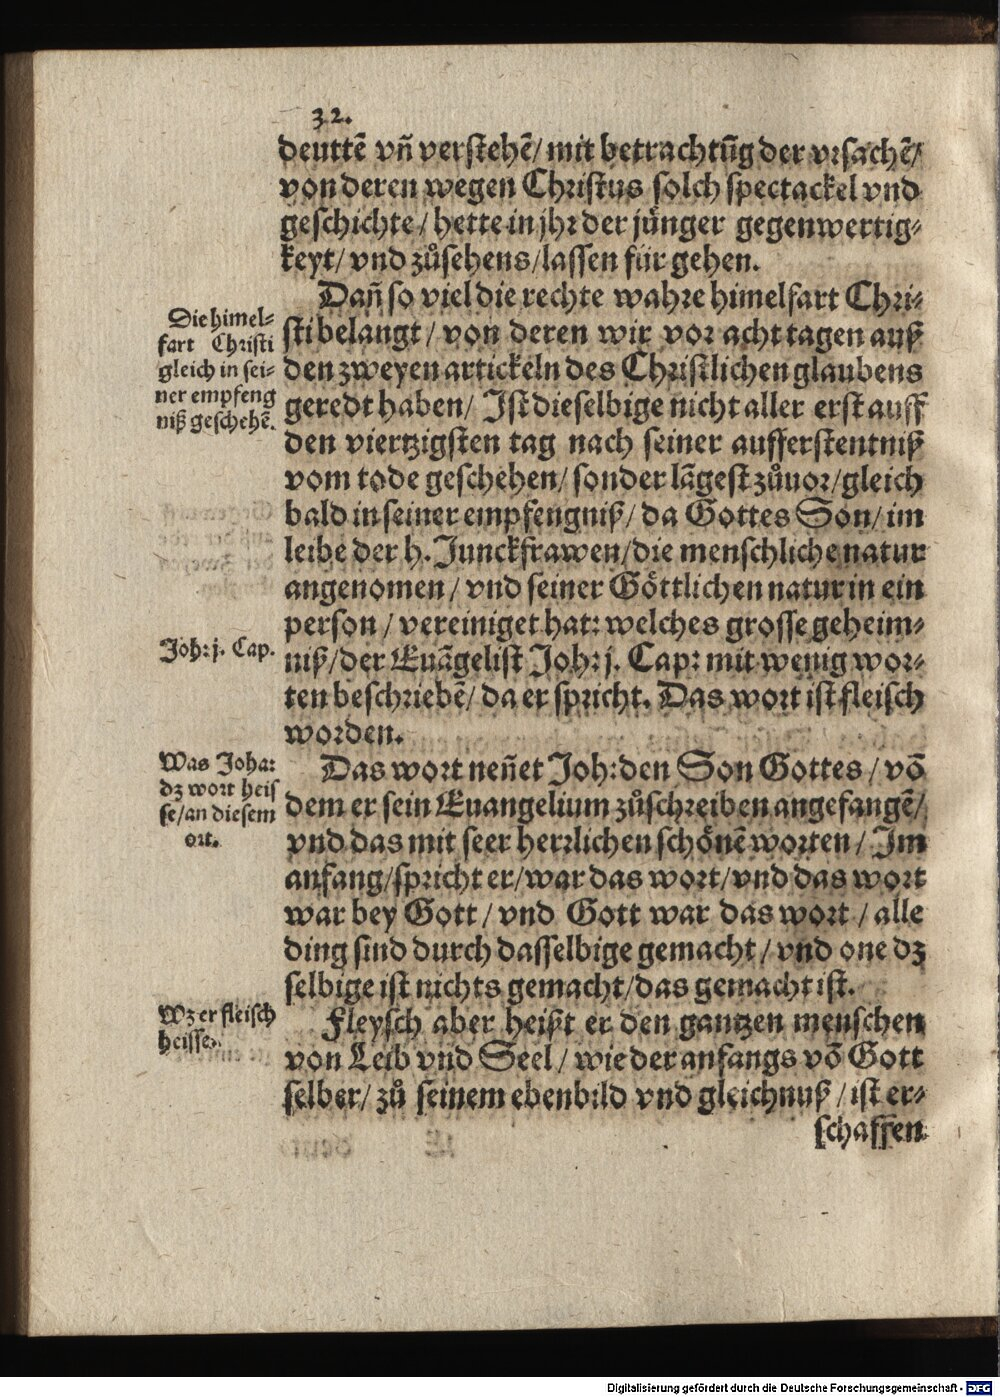 32.
deuttẽ vñ verstehẽ/ mit betrachtũg der vrsachẽ/
von deren wegen Christus solch spectackel vnd
geschichte/ hette in jhr der jünger gegenwertig⸗
keyt/ vnd zůsehens/lassen für gehen.
Dañ so viel die rechte wahre himelfart Chri⸗
sti belangt/ von deren wir vor acht tagen auß
den zweyen artickeln des Christlichen glaubens
geredt haben/ Ist dieselbige nicht aller erst auff
den viertzigsten tag nach seiner aufferstentniß
vom tode geschehen/ sonder lãgest zůuor/gleich
bald in seiner empfengniß/ da Gottes Son/ im
leibe der h. Junckfrawen/die menschliche natur
angenomen/ vnd seiner Göttlichen natur in ein
person/ vereiniget hat: welches grosse geheim⸗
niß/der Euãgelist Joh: j. Cap: mit wenig wor⸗
ten beschriebẽ/ da er spricht. Das wort ist fleisch
worden.
Das wort neñet Joh: den Son Gottes/ võ
dem er sein Euangelium zůschreiben angefangẽ/
vnd das mit seer herrlichen schönẽ worten/ Im
anfang/spricht er/war das wort/vnd das wort
war bey Gott/ vnd Gott war das wort/ alle
ding sind durch dasselbige gemacht/ vnd one dz
selbige ist nichts gemacht/das gemacht ist.
Fleysch aber heißt er den gantzen menschen
von Leib vnd Seel/ wie der anfangs võ Gott
selber/ zů seinem ebenbild vnd gleichnuß/ ist er⸗
schaffen
Die himel⸗
fart Christi
gleich in sei⸗
ner empfeng
niß geschehẽ.
Joh: j. Cap.
Was Joha:
dz wort heis
se/an diesem
ort.
Wz er fleisch
heisse.
Digitalisierung gefördert durch die Deutsche Forschungsgemeinschaft - DFG